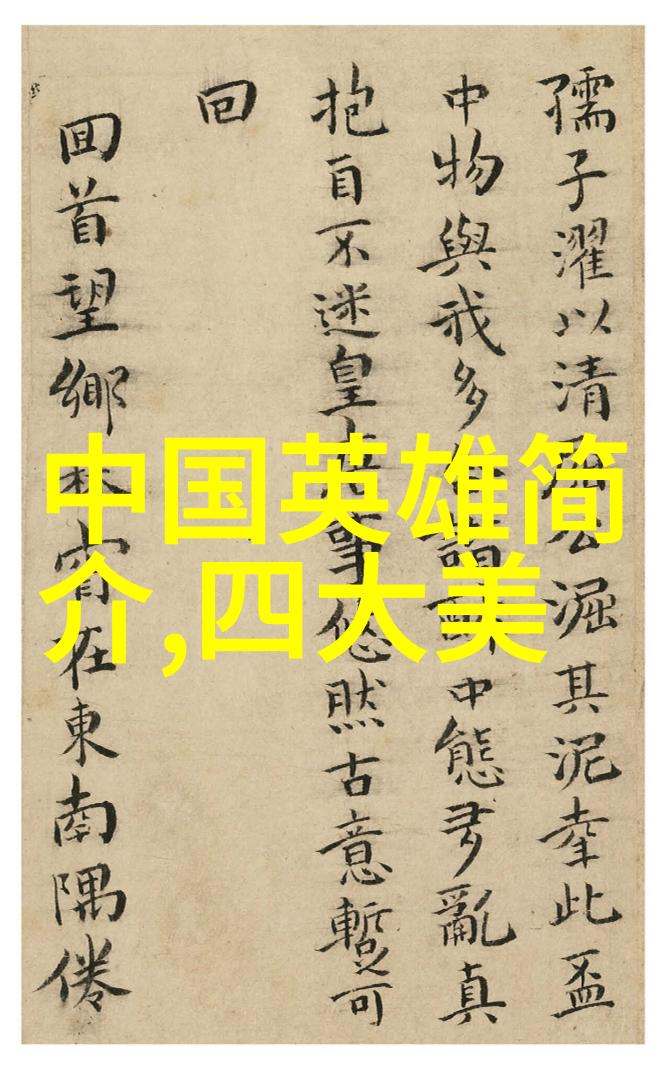 孺子濯以清公淈其泥幸此盃
中物與我多中態多亂真
抱自不迷皇悠然古意暫可
回
回首望鄉林宵在東南隅倦
中国英雄简
介,四大美